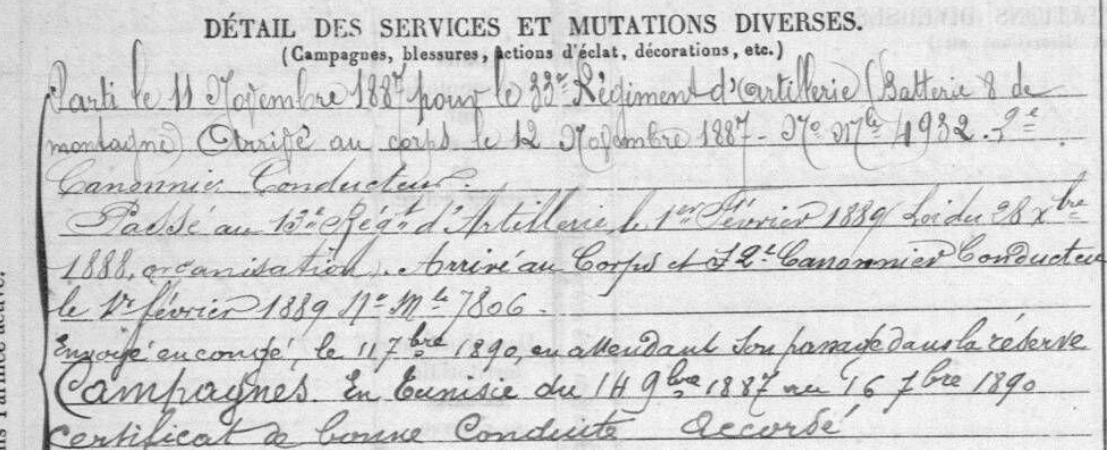 DÉTAIL DES SERVICES ET MUTATIONS DIVERSES.
(Campagnes, blessures, actions d'éclat, décorations, etc.)
Parti le 11 Novembre 1887 pour le 33e Régiment d'Artillerie (Batterie 8 de
montagne) Arrivé au corps le 12 Novembre 1887 - No Mle 4932.
Canonnier Conducteur.
Passé au 13e Régt d'Artillerie le 1er Février 1889 (Loi du 28 xbre
1888, organisation). Arrivé au Corps et 2e Canonnier Conducteur
le 1er février 1889 No Mle 7806.
Envoyé en congé, le 11 7bre 1890, en attendant son passage dans la réserve
Campagnes. En Tunisie du 14 9bre 1887 au 16 7bre 1890
Certificat de bonne Conduite Accordé